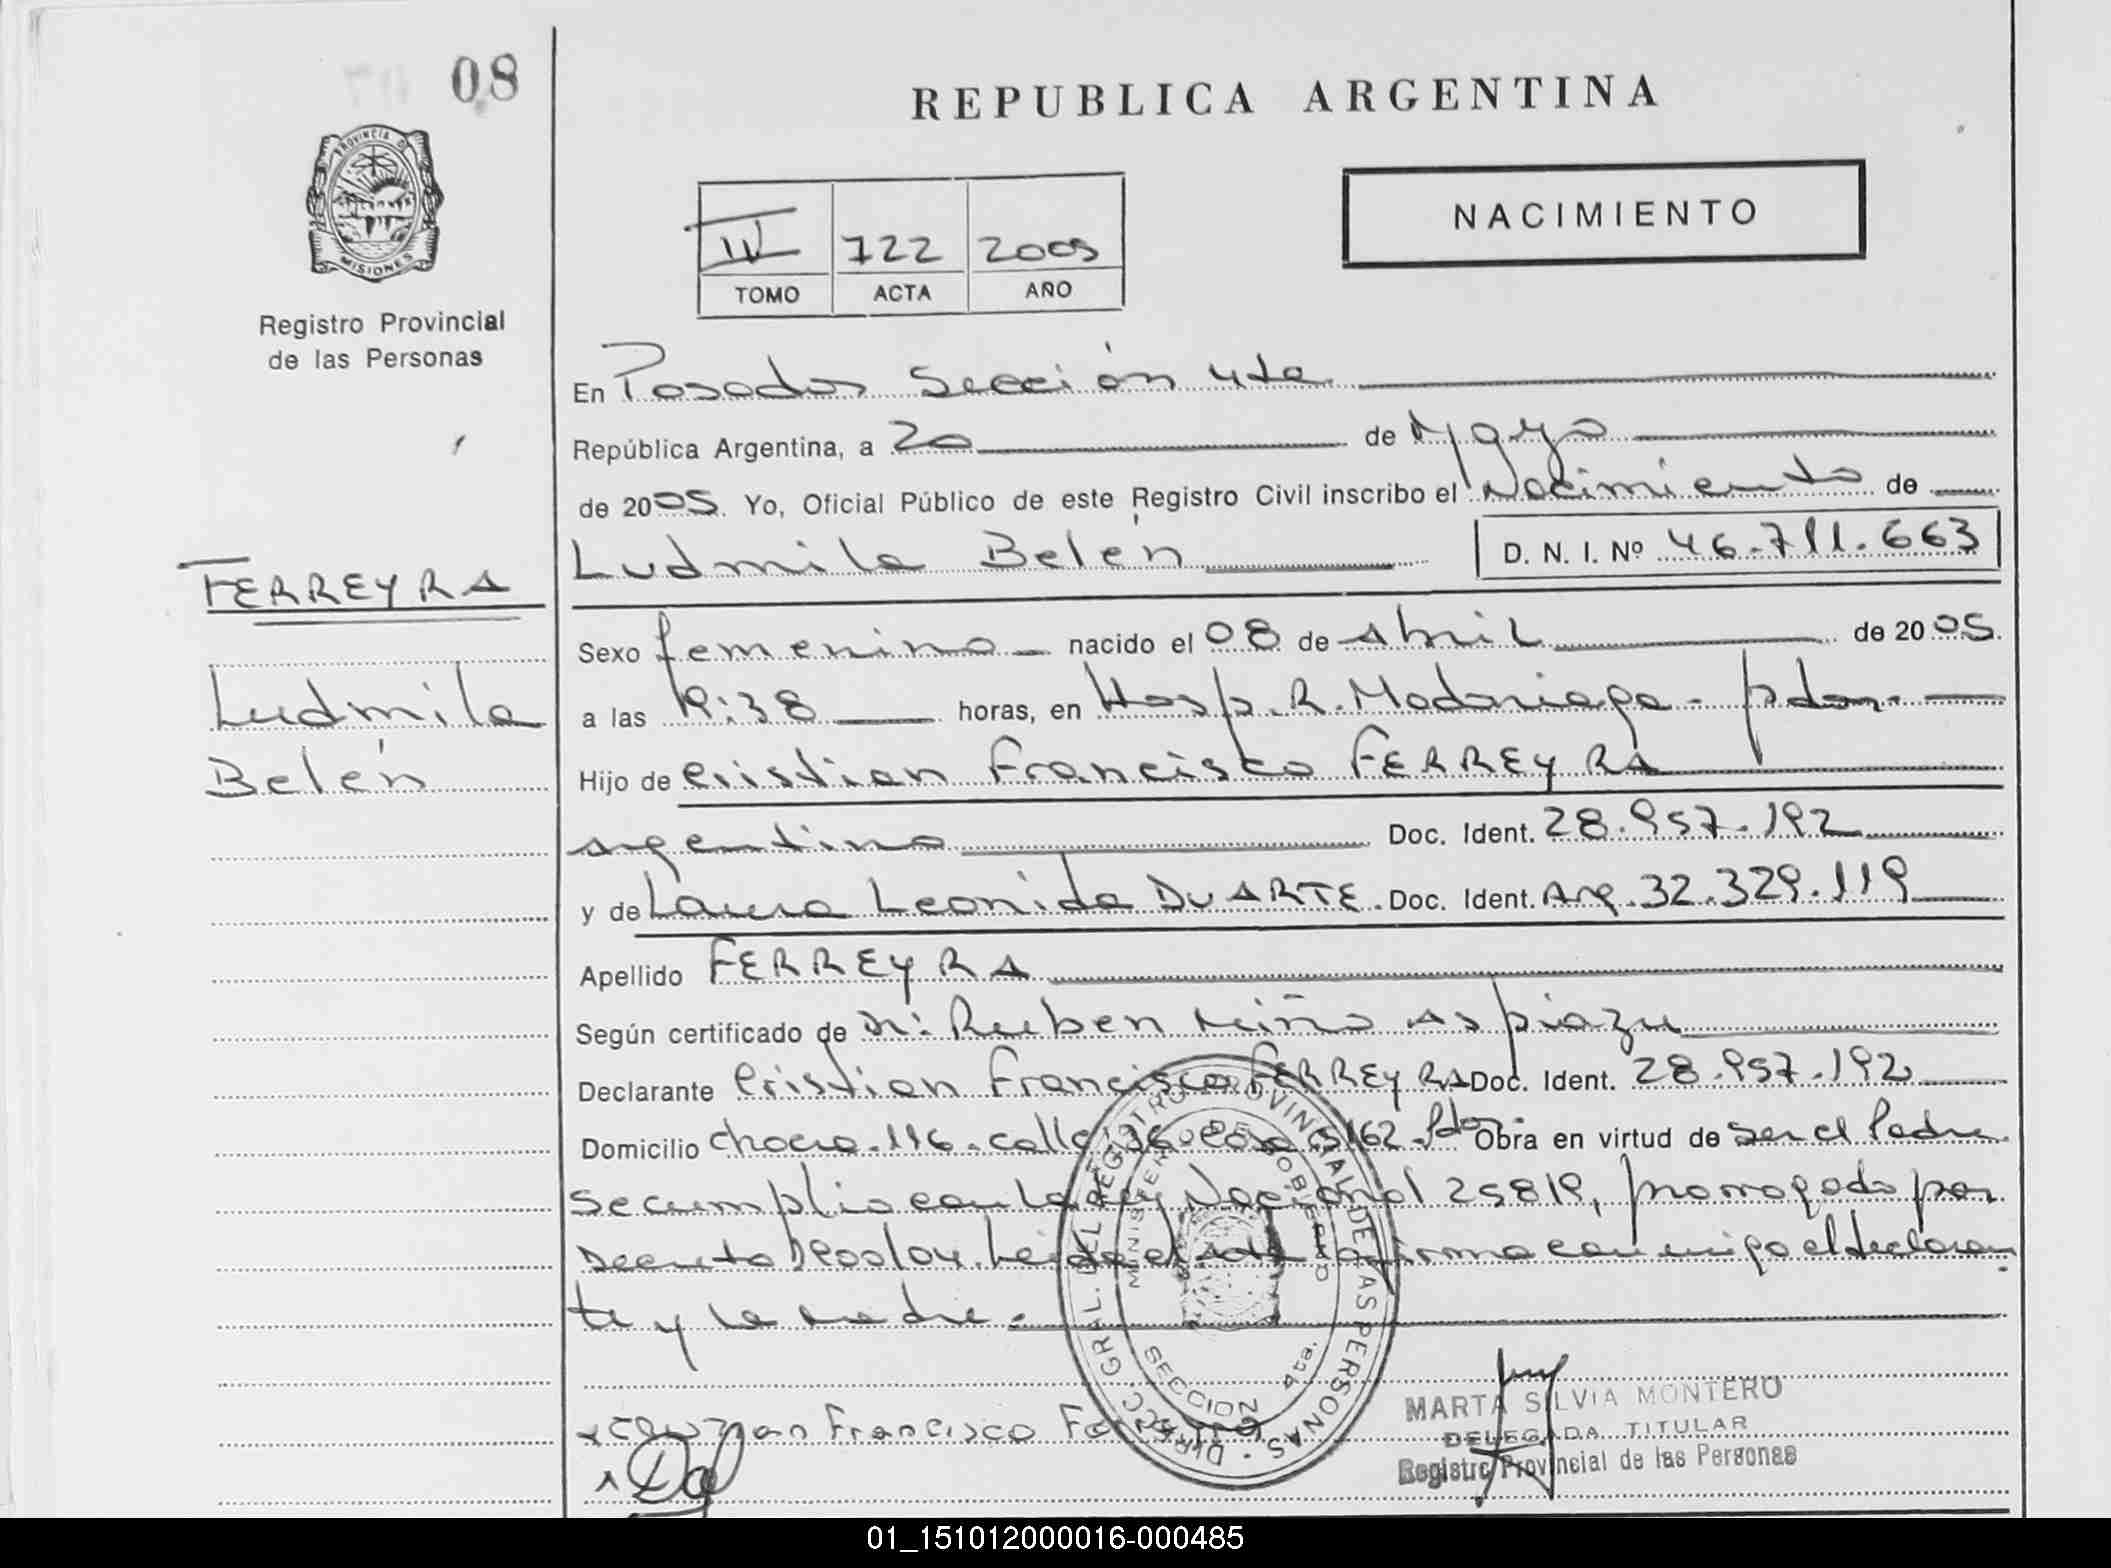 08
REPUBLICA ARGENTINA
PROVINCIA D
MISIONES
NACIMIENTO
IV 722 2005
TOMO ACTA AÑO
Registro Provincial
de las Personas
En Posadas Sección 4ta.
República Argentina, a 20 de Mayo
de 2005. Yo, Oficial Público de este Registro Civil inscribo el Nacimiento de
FERREYRA
Ludmila Belén
Ludmila Belén D. N. I. Nº 46.711.663
Sexo femenino nacido el 08 de Abril de 2005.
a las 19:38 horas, en Hosp. R. Madariaga - pdas.
Hijo de Cristian Francisco FERREYRA
argentino Doc. Ident. 28.957.192
y de Laura Leonida DUARTE. Doc. Ident. Arg. 32.329.119
Apellido FERREYRA
Según certificado de Dr: Ruben Miño Aspiazu
Declarante Cristian Francisco FERREYRA Doc. Ident. 28.957.192
Domicilio chacra 116 - calle 136 - casa 5162 . Pdas Obra en virtud de ser el Padre
se cumplio con la Ley Nacional 25819, prorrogado por
Decreto 1900/04. Leida el acta la firma conmigo el declaran
te y la madre.
DIRECC. GRAL. DEL REGISTRO PROVINCIAL DE LAS PERSONAS
MINISTERIO DE GOBIERNO
SECCION 4ta.
Francisco
MARTA SILVIA MONTERO
DELEGADA TITULAR
Registro Provincial de las Personas
01_151012000016-000485